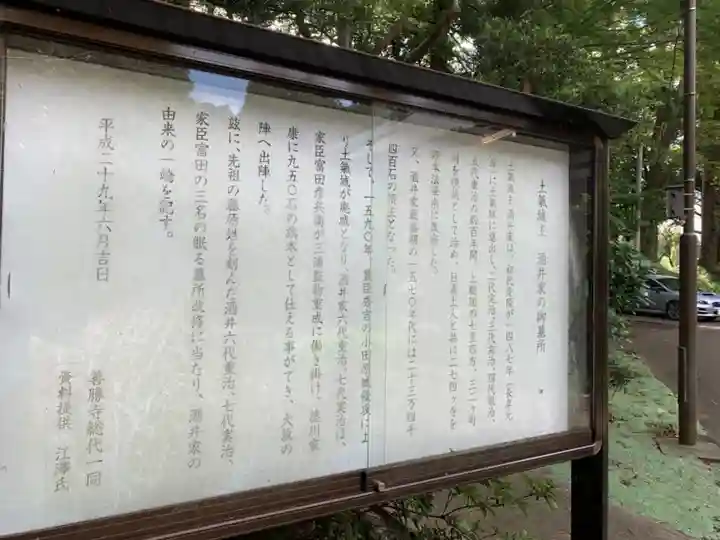 土氣城主 酒井家の御墓所
土氣城主酒井家は、初代貞隆が一四八七年(長享元
年)に土氣城に進出し、二代定治、三代玄治、四代胤治、
五代重治と約百年間、上総国の七里四方、三二一ヶ町
て治め、日泰上人と共に二七四ヶ寺を
した。
又、酒井家最盛期の一五七〇年代には二十三万四千
四百石の領主となった。
そして、一五九〇年、豊臣秀吉の小田原城侵攻によ
り土氣城が廃城となり、酒井家六代重治、七代実治は、
家臣富田彦兵衛が三浦監物重成に働き掛け、徳川家
康に九五〇石の旗本として仕える事ができ、大阪の
陣へ出陣した。
玆に、先祖の墓所を創んだ酒井六代重治、七代実治、
家臣富田の三名の眠る墓所改修に当たり、酒井家の
由来の一端を記す。
平成二十九年六月吉日
善勝寺総代一同
資料提供 江澤氏